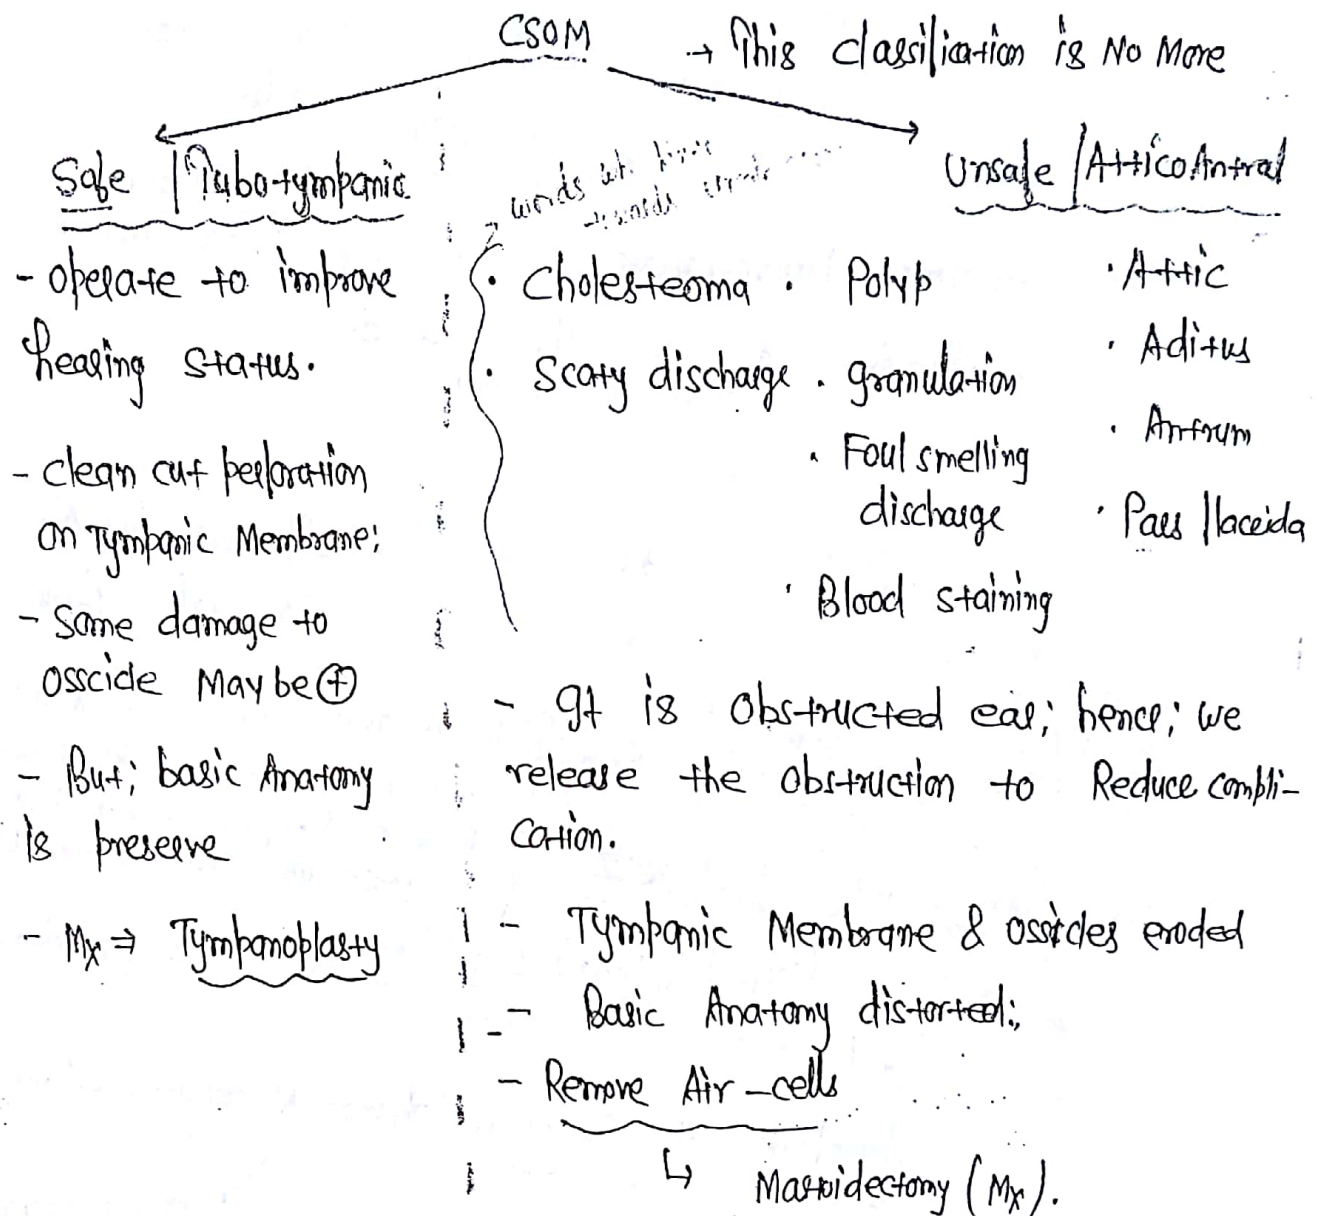 CSOM
→ This classification is No More
Safe / Tubotympanic
- operate to improve
hearing status.
- clean cut perforation
on Tympanic Membrane;
- Some damage to
osscide May be ⊕
- But; basic Anatomy
is preserve
- Mx ⇒ Tympanoplasty
Unsafe / AtticoAntral
words
towards
• Cholesteoma
• Scaty discharge
• Polyp
• granulation
• Foul smelling
discharge
• Blood staining
• Attic
• Aditus
• Antrum
• Pars flaceida
- It is obstructed ear; hence; we
release the obstruction to Reduce compli-
cation.
- Tympanic Membrane & ossicles eroded
- Basic Anatomy distorted;
- Remove Air-cells
↳ Mastoidectomy (Mx).